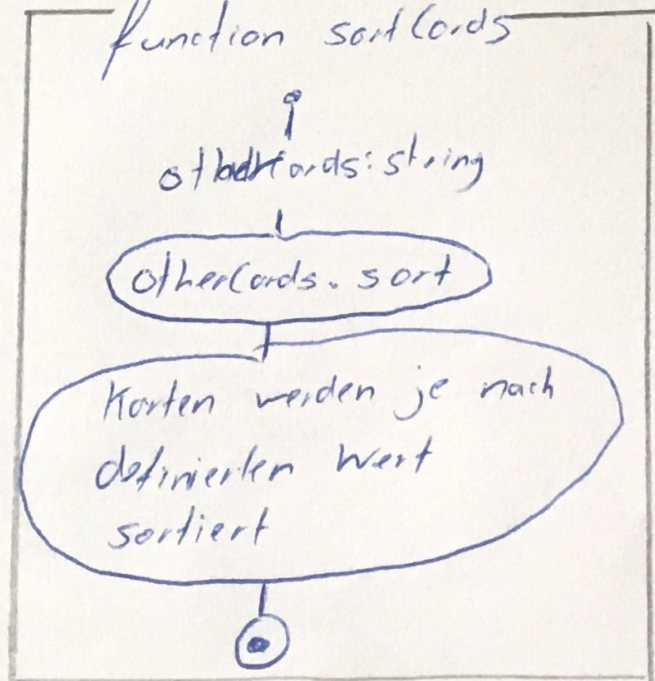 function sortCards
otherCards: string
otherCards. sort
Karten werden je nach
definierten Wert
sortiert